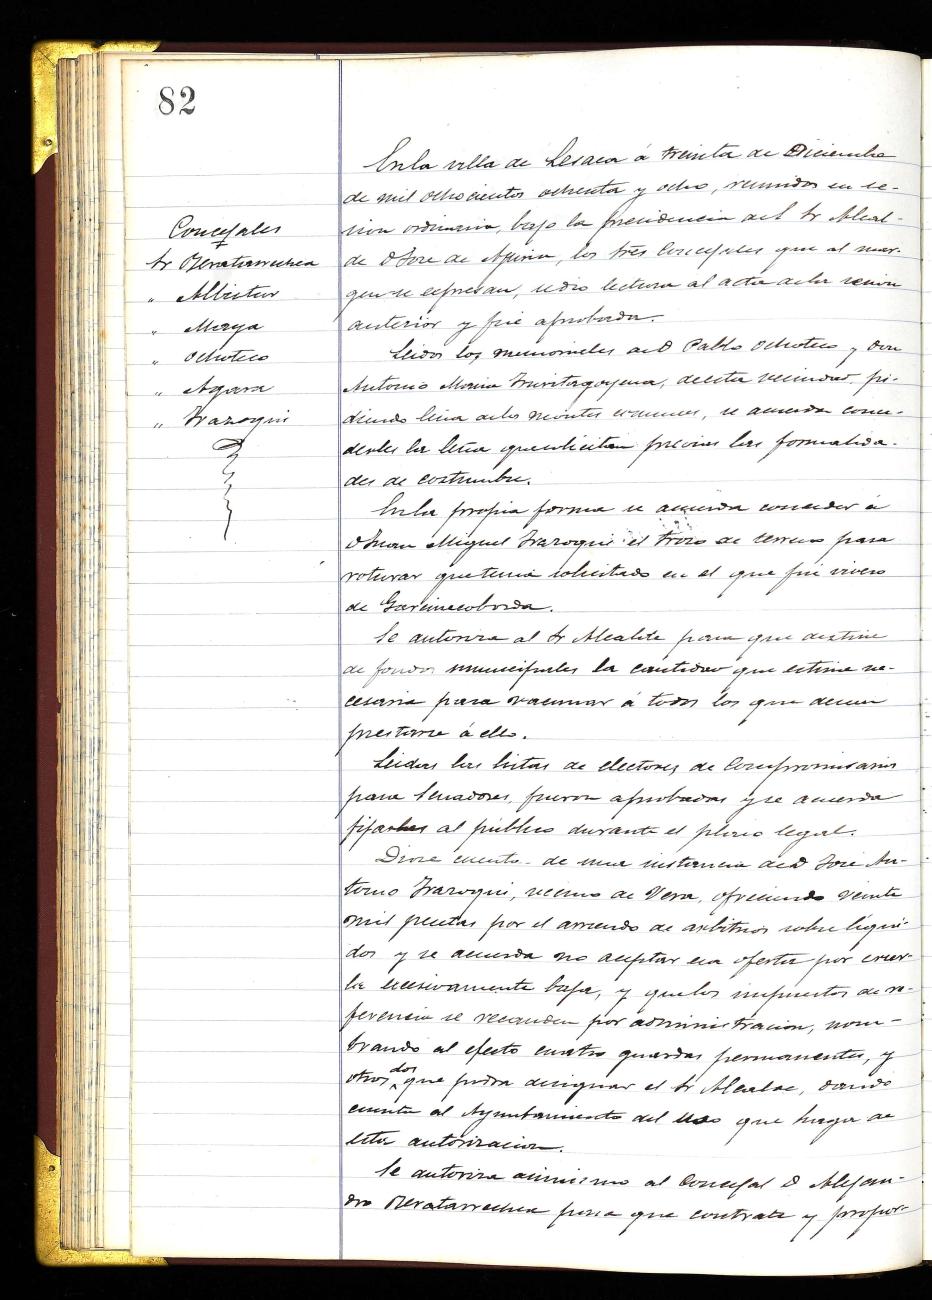 82
Concejales
Sr Beratarrechea
" Albistur
" Maya
" Ochoteco
" Agara
" Irazoqui
En la villa de Lesaca á treinta de Diciembre
de mil ochocientos ochenta y ocho, reunidos en se-
sion ordinaria, bajo la presidencia del Sr Alcal-
de D Jose de los tres Concejales que al mar-
gen se espresan, se dio lectura al acta de la sesion
anterior y fué aprobada.
Leidos los memoriales de D Pablo Ochoteco y don
Antonio Maria de esta vecindad, pi-
diendo leña de los montes comunes, se acuerda conce-
derles la leña que solicitan previas las formalida-
des de costumbre.
En la propia forma se acuerda conceder á
D Juan Miguel Irazoqui el trozo de terreno para
roturar que tenia solicitado en el que fué vivero
de Garcinecoborda.
Se autoriza al Sr Alcalde para que destine
de fondos municipales la cantidad que estime ne-
cesaria para vacunar á todos los que deseen
prestarse á ello.
Leidas las listas de electores de Compromisarios
para Senadores, fueron aprobadas y se acuerda
fijarlas al público durante el plazo legal.
Diose cuenta de una instancia de D José An-
tonio Irazoqui, vecino de Vera, ofreciendo veinte
mil pesetas por el arriendo de arbitrios sobre líqui-
dos y se acuerda no aceptar esa oferta por creer-
la escesivamente baja, y que los impuestos de re-
ferencia se recauden por administracion, nom-
brando al efecto cuatro guardas permanentes, y
otros dos que podrá designar el Sr Alcalde, dando
cuenta al Ayuntamiento del uso que haga de
esta autorizacion.
Se autoriza asimismo al Concejal D Alejan-
dro Beratarrechea para que contrate y propor-